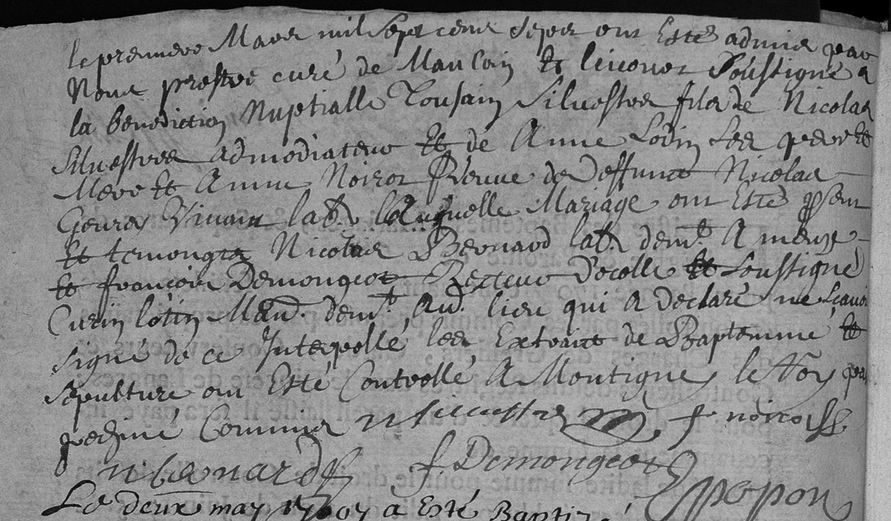 le premiere Mars mil Sept cens Sept ont Estes admis par
Nous prestre curé de Maulain Et Soussigné a
la benediction Nuptialle Tousain Silvestre fils de Nicolas
Silvestres admodiateur Et de Anne Lodin Ses pere Et
Mere Et Anne Noirot Veuve de deffunct Nicolas
Vivant lab. laquelle Mariage ont Este psent
Et temongn Nicolas Bernard lab. demt A
Et francois Demongeot Recteur d'ecolle Et Soussigné
Mand. demt Aud. lieu qui A declaré ne Scavoir
signé de ce Interpellé les Extrait de Baptemme Et
Sepulture ont Esté Controllé A Montigny le par
Commis n silvestre f noirot
n bernard f. Demongeot
Le deux may a Esté Baptiz